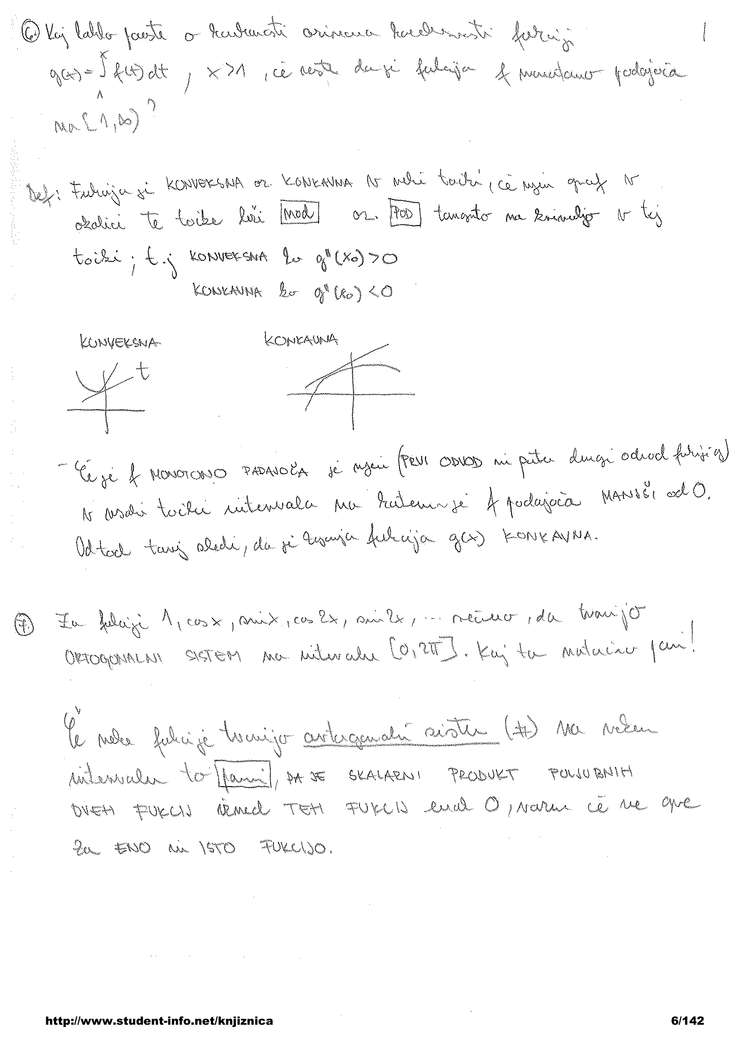 6. Kaj lahko poveste o konkavnosti oziroma konveksnosti funkcije
g(x) = ∫₁ˣ f(t) dt , x > 1 , če veste da je funkcija f monotono padajoča
na [1, ∞) ?
1
Def: Funkcija je KONVEKSNA oz. KONKAVNA v neki točki, če njen graf v
okolici te točke leži NAD oz. POD tangento na krivuljo v tej
točki ; t.j KONVEKSNA ko g"(x₀) > 0
KONKAVNA ko g"(x₀) < 0
KONVEKSNA
KONKAVNA
t
- Če je f MONOTONO PADAJOČA je njen (PRVI ODVOD in drugi odvod funkcije g)
v vsaki točki intervala na katerem je f padajoča MANJŠI od 0.
Od tod torej sledi, da je funkcija g(x) KONKAVNA.
7. Za funkcije 1, cos x, sin x, cos 2x, sin 2x, ... rečemo, da tvorijo
ORTOGONALNI SISTEM na intervalu [0, 2π]. Kaj to natančno pomeni!
Če neke funkcije tvorijo ortogonalni sistem (#) na nekem
intervalu to pomeni, DA JE SKALARNI PRODUKT POLJUBNIH
DVEH FUKCIJ izmed TEH FUKCIJ enak 0, razen če ne gre
za ENO in ISTO FUKCIJO.
http://www.student-info.net/knjiznica
6/142